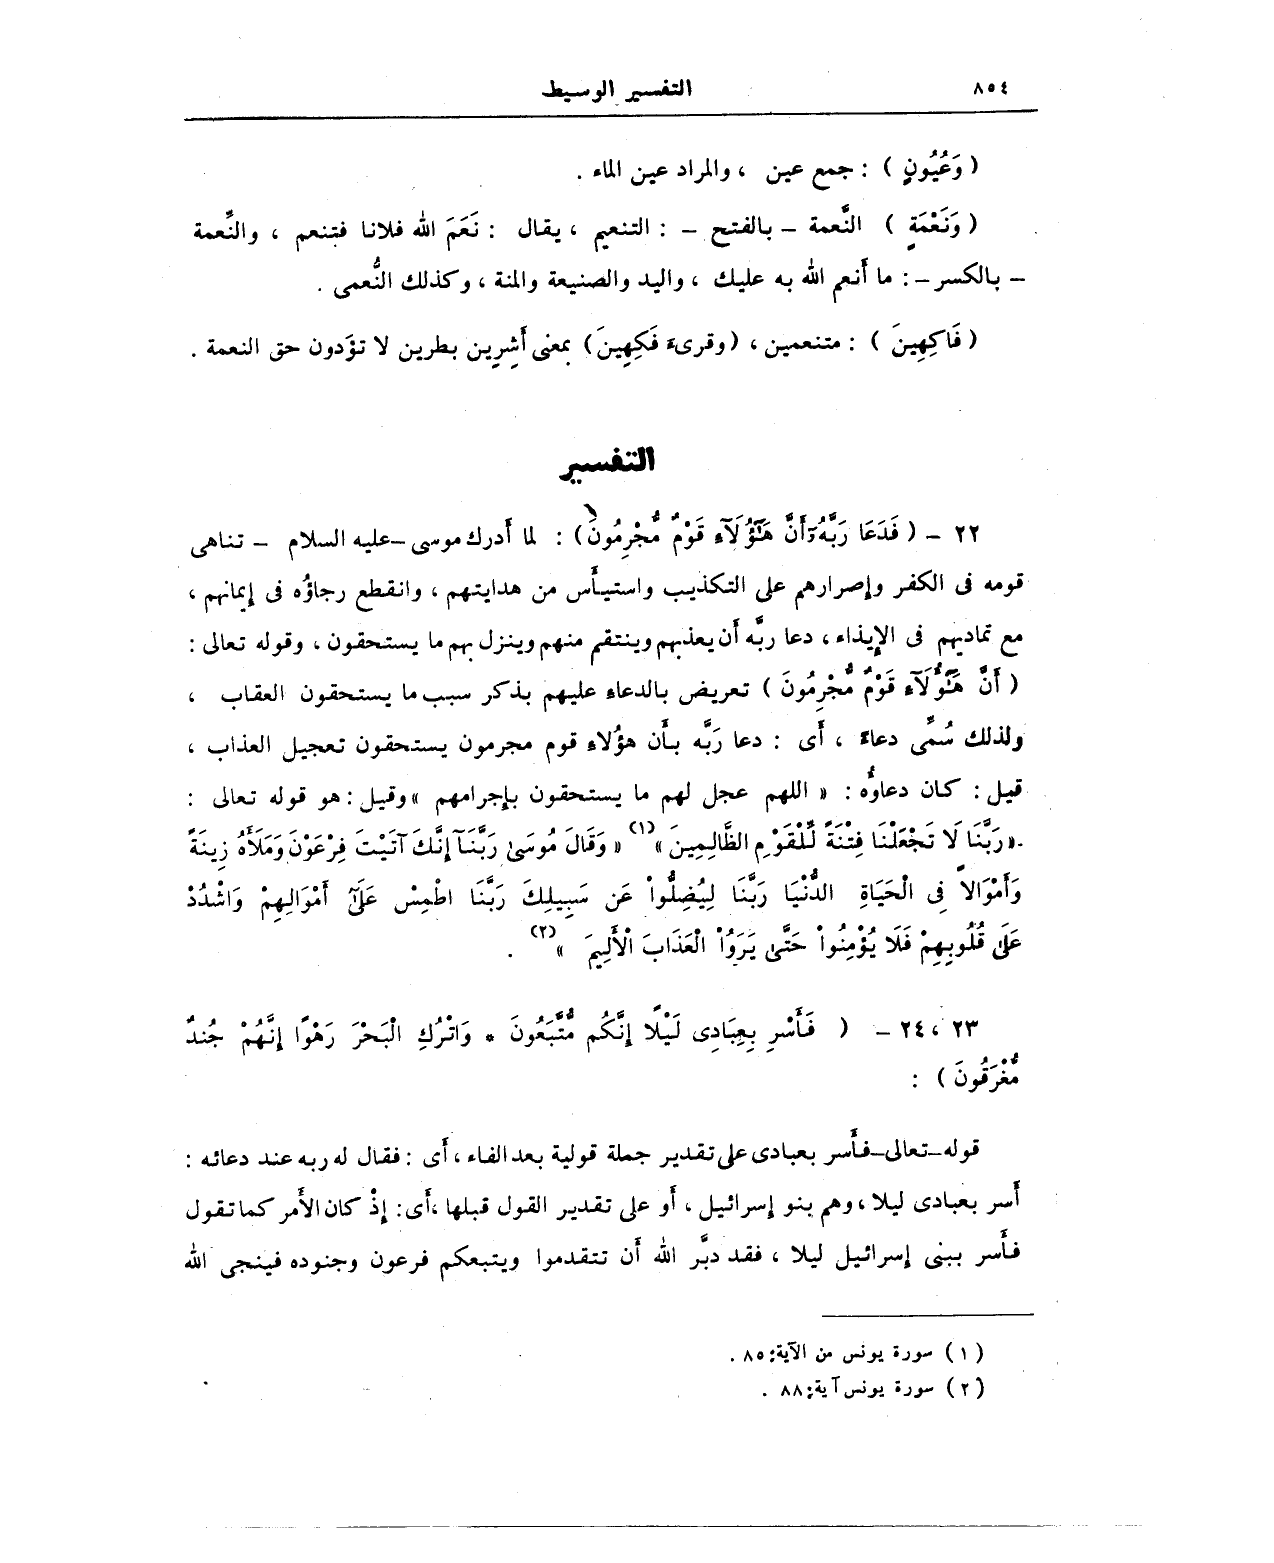 ٨٥٤
التفسير الوسيط
( وَعُيُونٍ ) : جمع عين ، والمراد عين الماء .
( وَنَعْمَةٍ ) النَّعمة – بالفتح – : التنعيم ، يقال : نَعَمَ الله فلانا فتنعم ، والنِّعمة
– بالكسر – : ما أَنعم الله به عليك ، واليد والصنيعة والمنة ، وكذلك النُّعمى .
( فَاكِهِينَ ) : متنعمين ، (وقرىء فَكِهِينَ) بمعنى أَشِرِين بطرين لا تؤَدون حق النعمة .
التفسير
٢٢ – ( فَدَعَا رَبَّهُۥٓ أَنَّ هَٰٓؤُلَآءِ قَوْمٌ مُّجْرِمُونَ) : لما أَدرك موسى –عليه السلام – تناهى
قومه فى الكفر وإصرارهم على التكذيب واستيأَس من هدايتهم ، وانقطع رجاؤه فى إيمانهم ،
مع تماديهم فى الإيذاء ، دعا ربَّه أَن يعذبهم وينتقم منهم وينزل بهم ما يستحقون ، وقوله تعالى :
( أَنَّ هَٰٓؤُلَآءِ قَوْمٌ مُّجْرِمُونَ ) تعريض بالدعاء عليهم بذكر سبب ما يستحقون العقاب ،
ولذلك سُمِّى دعاءً ، أَى : دعا رَبَّه بأَن هؤُلاءِ قوم مجرمون يستحقون تعجيل العذاب ،
قيل : كان دعاؤُه : « اللهم عجل لهم ما يستحقون بإجرامهم » وقيل : هو قوله تعالى :
«رَبَّنَا لَا تَجْعَلْنَا فِتْنَةً لِّلْقَوْمِ الظَّالِمِينَ» (١) « وَقَالَ مُوسَىٰ رَبَّنَآ إِنَّكَ آتَيْتَ فِرْعَوْنَ وَمَلَأَهُ زِينَةً
وَأَمْوَالاً فِى الْحَيَاةِ الدُّنْيَا رَبَّنَا لِيُضِلُّواْ عَن سَبِيلِكَ رَبَّنَا اطْمِسْ عَلَىٰٓ أَمْوَالِهِمْ وَاشْدُدْ
عَلَىٰ قُلُوبِهِمْ فَلَا يُؤْمِنُواْ حَتَّىٰ يَرَوُاْ الْعَذَابَ الْأَلِيمَ » (٢) .
٢٣ ، ٢٤ – ( فَأَسْرِ بِعِبَادِى لَيْلًا إِنَّكُم مُّتَّبَعُونَ * وَاتْرُكِ الْبَحْرَ رَهْوًا إِنَّهُمْ جُندٌ
مُّغْرَقُونَ ) :
قوله–تعالى–فأَسر بعبادى على تقدير جملة قولية بعد الفاء ، أَى : فقال له ربه عند دعائه :
أَسر بعبادى ليلا ، وهم بنو إسرائيل ، أَو على تقدير القول قبلها ،أَى : إِذْ كان الأَمر كما تقول
فأَسر ببنى إسرائيل ليلا ، فقد دبَّر الله أَن تتقدموا ويتبعكم فرعون وجنوده فينجى الله
(١) سورة يونس من الآية: ٨٥ .
(٢) سورة يونس آية: ٨٨ .